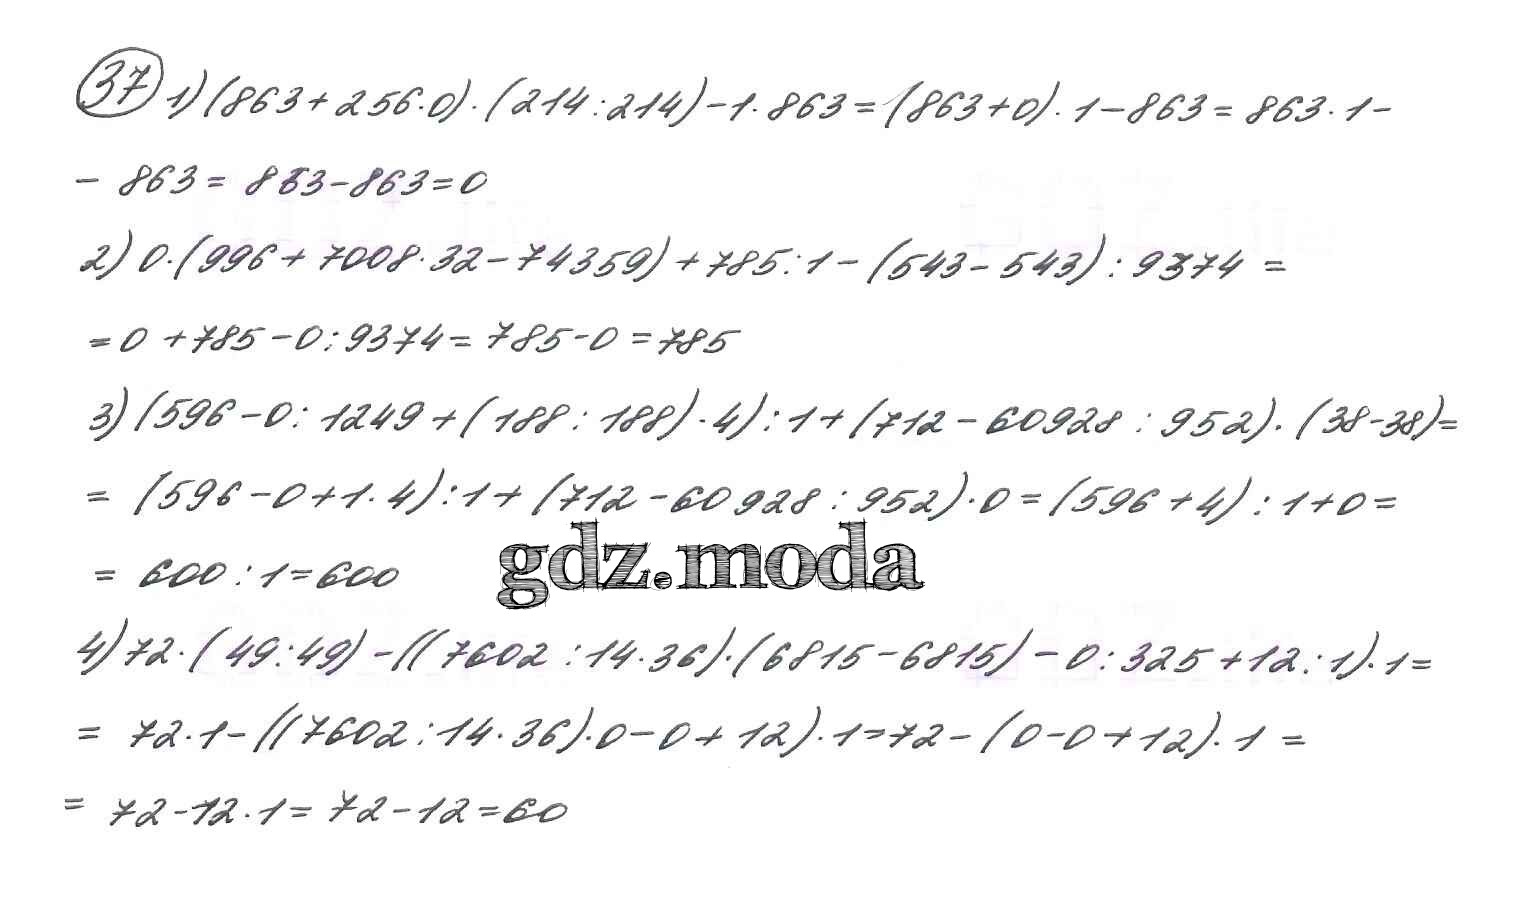 37 1) (863+256·0)·(214:214)-1·863=(863+0)·1-863=863·1-
- 863=863-863=0
2) 0·(996+7008·32-74359)+785:1-(543-543):9374=
=0+785-0:9374=785-0=785
3) (596-0:1249+(188:188)·4):1+(712-60928:952)·(38-38)=
= (596-0+1·4):1+(712-60928:952)·0=(596+4):1+0=
= 600:1=600
gdz.moda
4) 72·(49:49)-((7602:14·36)·(6815-6815)-0:325+12:1)·1=
= 72·1-((7602:14·36)·0-0+12)·1=72-(0-0+12)·1=
= 72-12·1=72-12=60